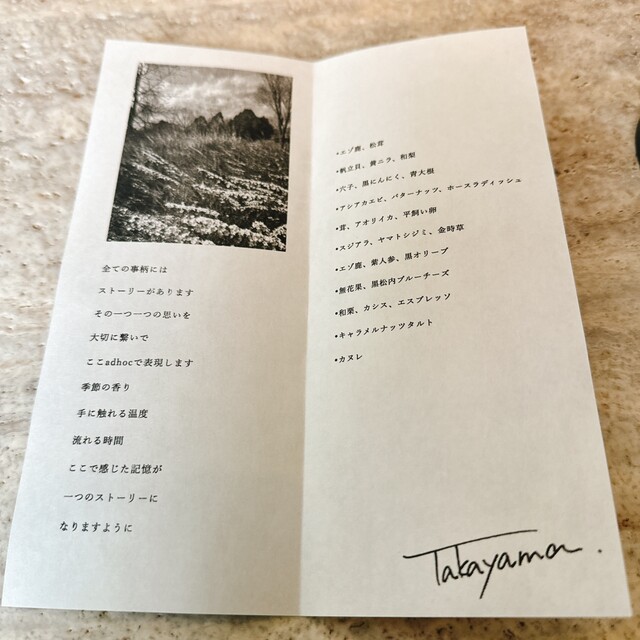 全ての事柄には
ストーリーがあります
その一つ一つの思いを
大切に繋いで
ここadhocで表現します
季節の香り
手に触れる温度
流れる時間
ここで感じた記憶が
一つのストーリーに
なりますように
•エゾ鹿、松茸
•帆立貝、黄ニラ、和梨
•穴子、黒にんにく、青大根
•アシアカエビ、バターナッツ、ホースラディッシュ
•茸、アオリイカ、平飼い卵
•スジアラ、ヤマトシジミ、金時草
•エゾ鹿、紫人参、黒オリーブ
•無花果、黒松内ブルーチーズ
•和栗、カシス、エスプレッソ
•キャラメルナッツタルト
•カヌレ
Takayama.